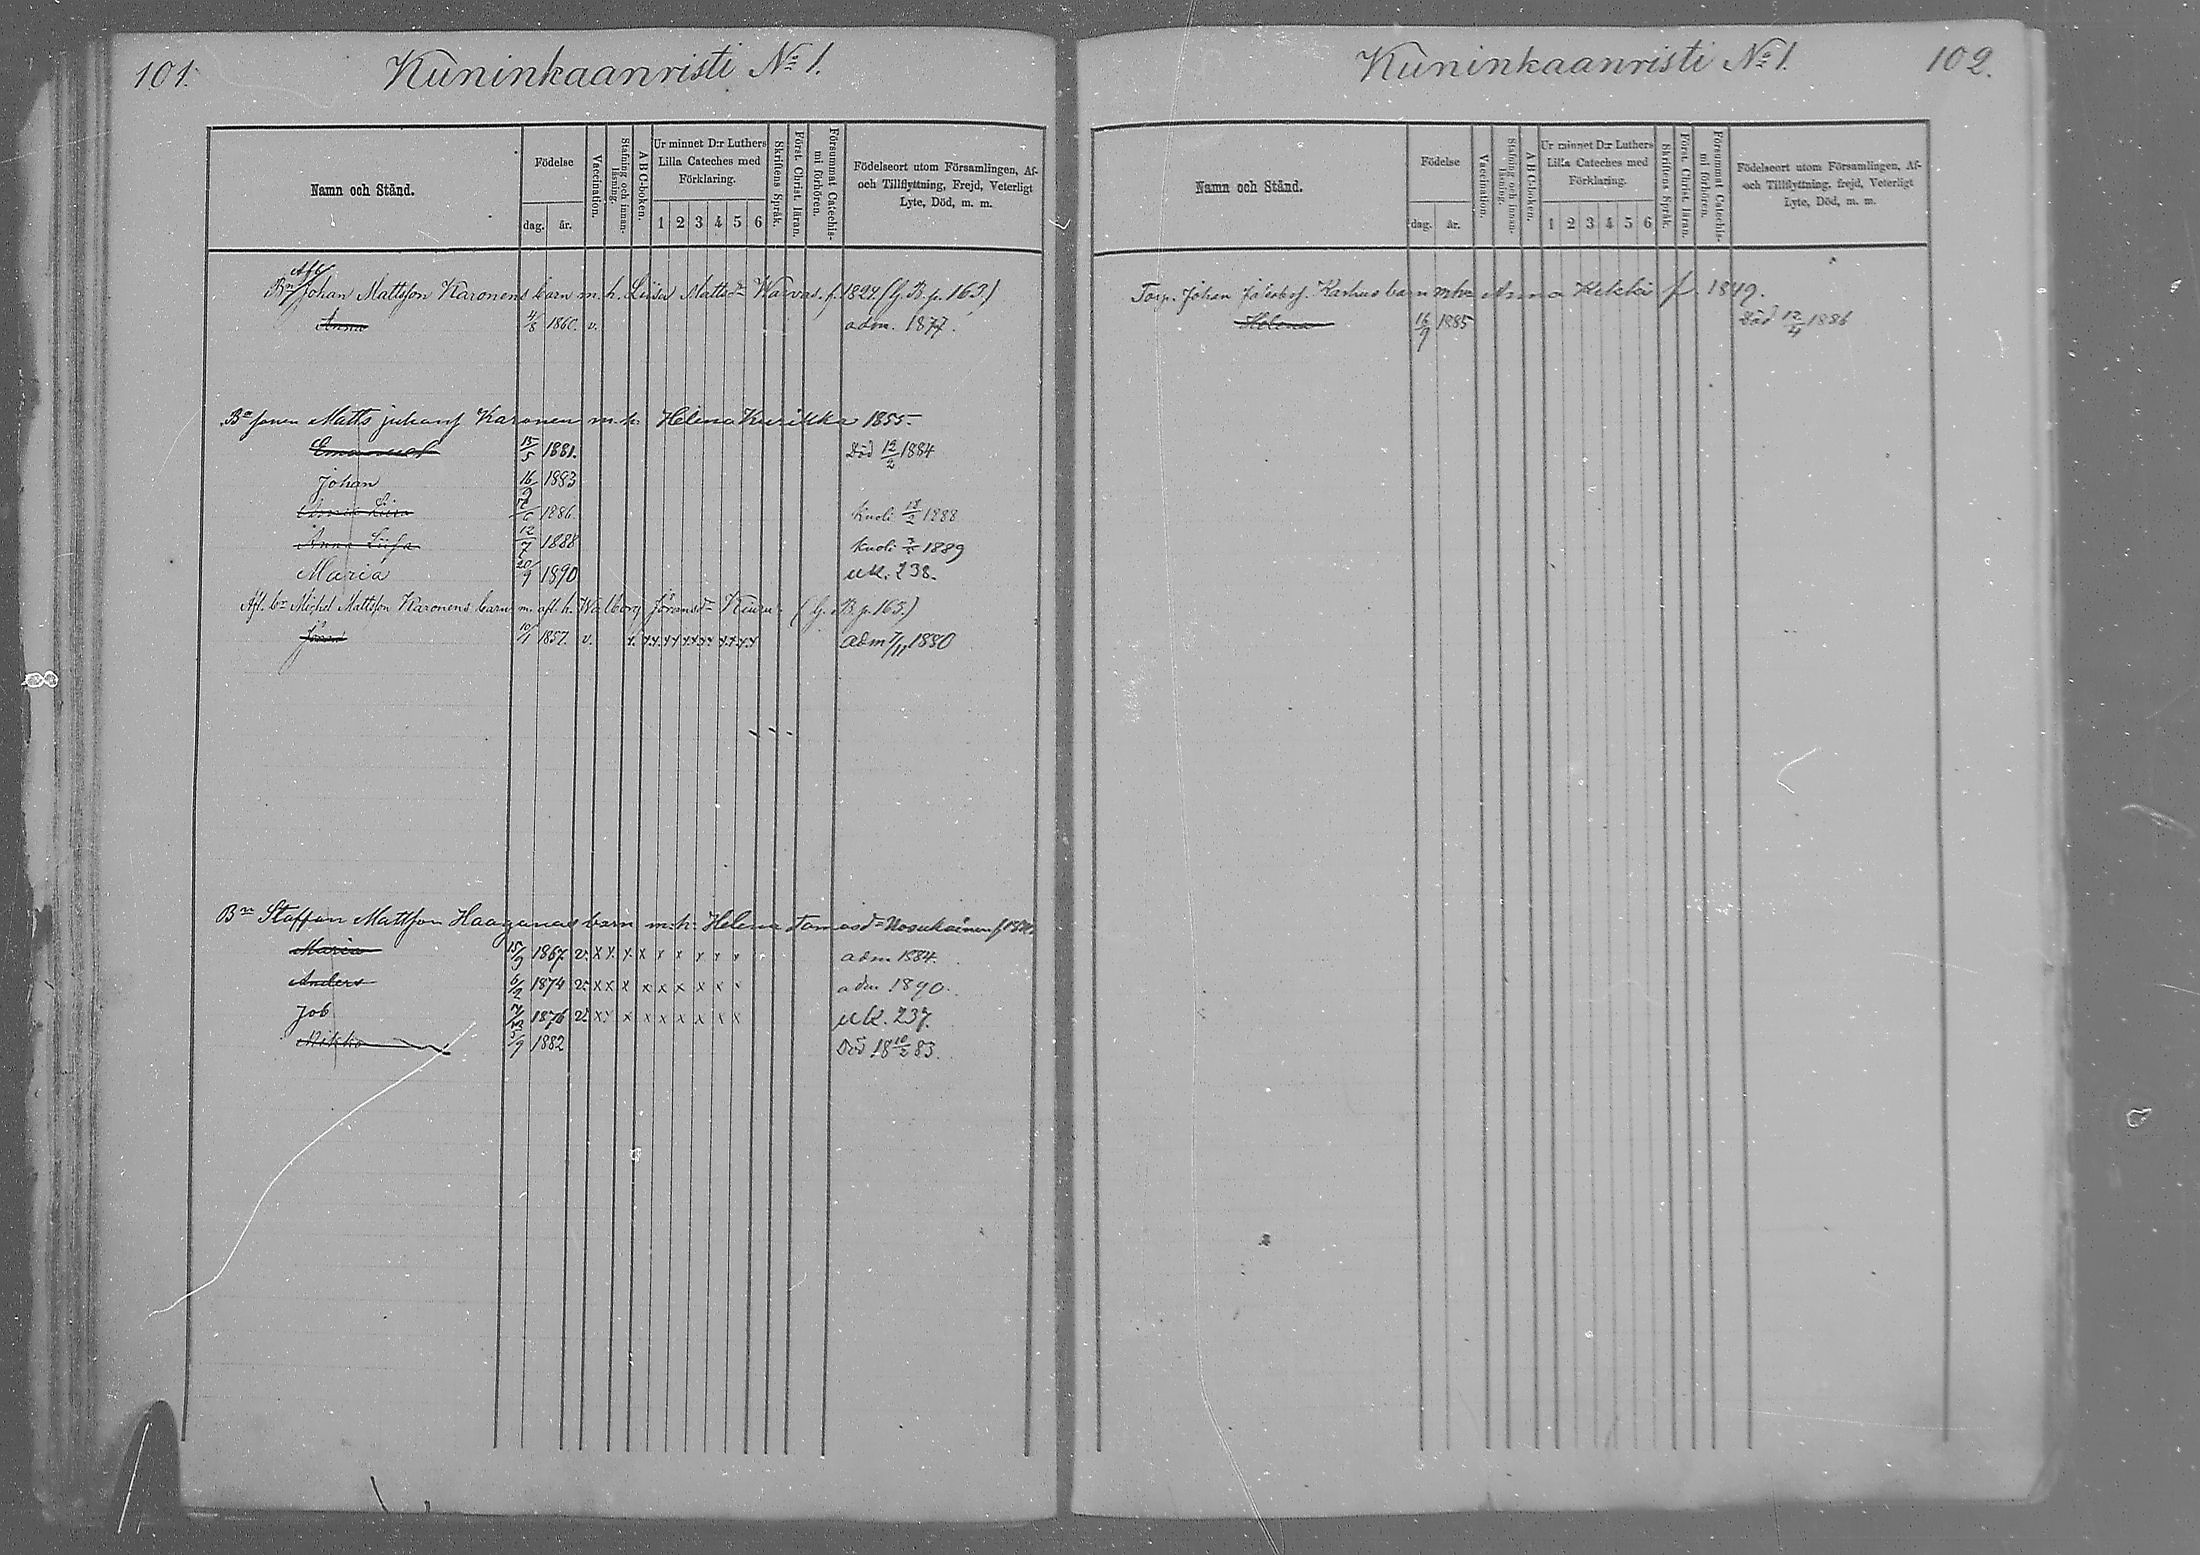 101.
Kuninkaanristi No 1.
Namn och Stånd.
Födelse
dag.
år.
Vaccination.
Stafning och innan-
läsning.
A B C-boken.
Ur minnet D:r Luthers
Lilla Cateches med
Förklaring.
1 2 3 4 5 6
Skriftens Språk.
Först. Christ. läran.
Försummat Catechis-
mi förhören.
Födelseort utom Församlingen, Af-
och Tillflyttning, Frejd, Veterligt
Lyte, Död, m. m.
Afl
Bn Johan Mattsson Karonens barn m. h. Liisa Mattsd:r Warvas f. 1824 (G. B. p. 163)
Anna 4/8 1860. v. adm. 1877.
Bn sonen Matts Juhans Karonen m. h. Helena Kurikka 1855-
Emanuel 15/5 1881. Död 12/2 1884
Johan 16/9 1883
Liisa 1886 kuoli 17/2 1888
Anna Liisa 12/7 1888 kuoli 1889
Maria 20/9 1890 uk. 238.
Afl. bn Michel Mattsson Karonens barn m. afl. h. Walborg Göransd:r Kiuru (G. B. p. 163.)
Göran 10/1 1857. v. x. x.x. x x x.x x: x.x x.x adm 7/11 1880
Bn Staffan Mattsson Haaganas barn m. h. Helena Tomasd:r Nosukainen f
Maria 15/9 1867 v. x x. x x x x x x x adm 1884.
Anders 6/2 1874 v. x x x x x x x x x adm 1890.
Job 1876 v. x x x x x x x x x uk. 237.
Mikko 5/9 1882 Död 18 10/2 83.
Kuninkaanristi No 1.
102.
Namn och Stånd.
Födelse
dag.
år.
Vaccination.
Stafning och innan-
läsning.
A B C-boken.
Ur minnet D:r Luthers
Lilla Cateches med
Förklaring.
1 2 3 4 5 6
Skriftens Språk.
Först. Christ. läran.
Försummat Catechis-
mi förhören.
Födelseort utom Församlingen, Af-
och Tillflyttning, frejd, Veterligt
Lyte, Död, m. m.
Torp. Johan Jakobss. Karhus barn m hu Anna Kekki f. 1849.
Helena 16/9 1885 Död 12/4 1886